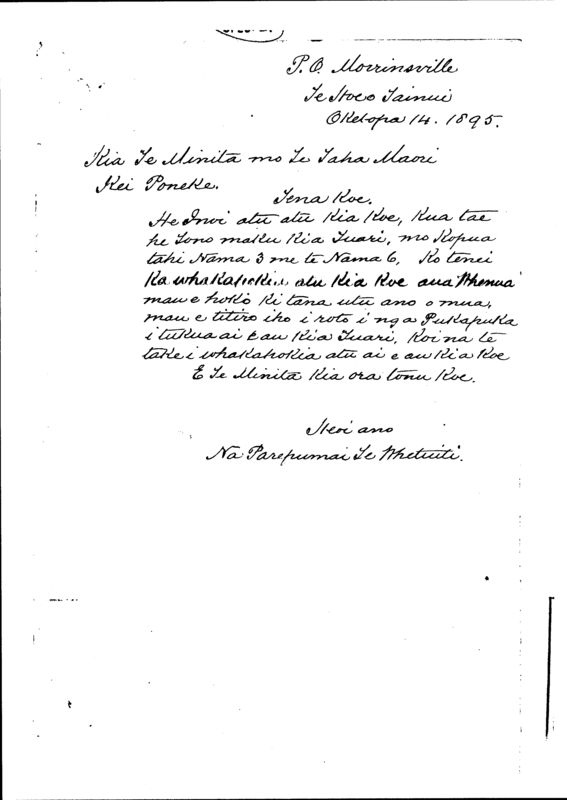 P.O. Morrinsville
Te Hoeo Tainui
Oketopa 14. 1895.
Kia Te Minita mo Te Taha Maori
Kei Poneke.
Tena Koe.
He Inoi atu atu Kia Koe, Kua tae
he Tono maku Kia Tuari, mo Kopua
tahi Nama 3 me te Nama 6, Ko tenei
Ka whakahokia atu Kia Koe aua Whenua
mau e hoko Ki tana utu ano o mua,
mau e titiro iho i roto i nga Pukapuka
i tukua ai e au Kia Tuari, Koina te
take i whakahokia atu ai e au Kia Koe
E Te Minita Kia ora tonu Koe.
Heoi ano
Na Parepumai Te Whetuiti.